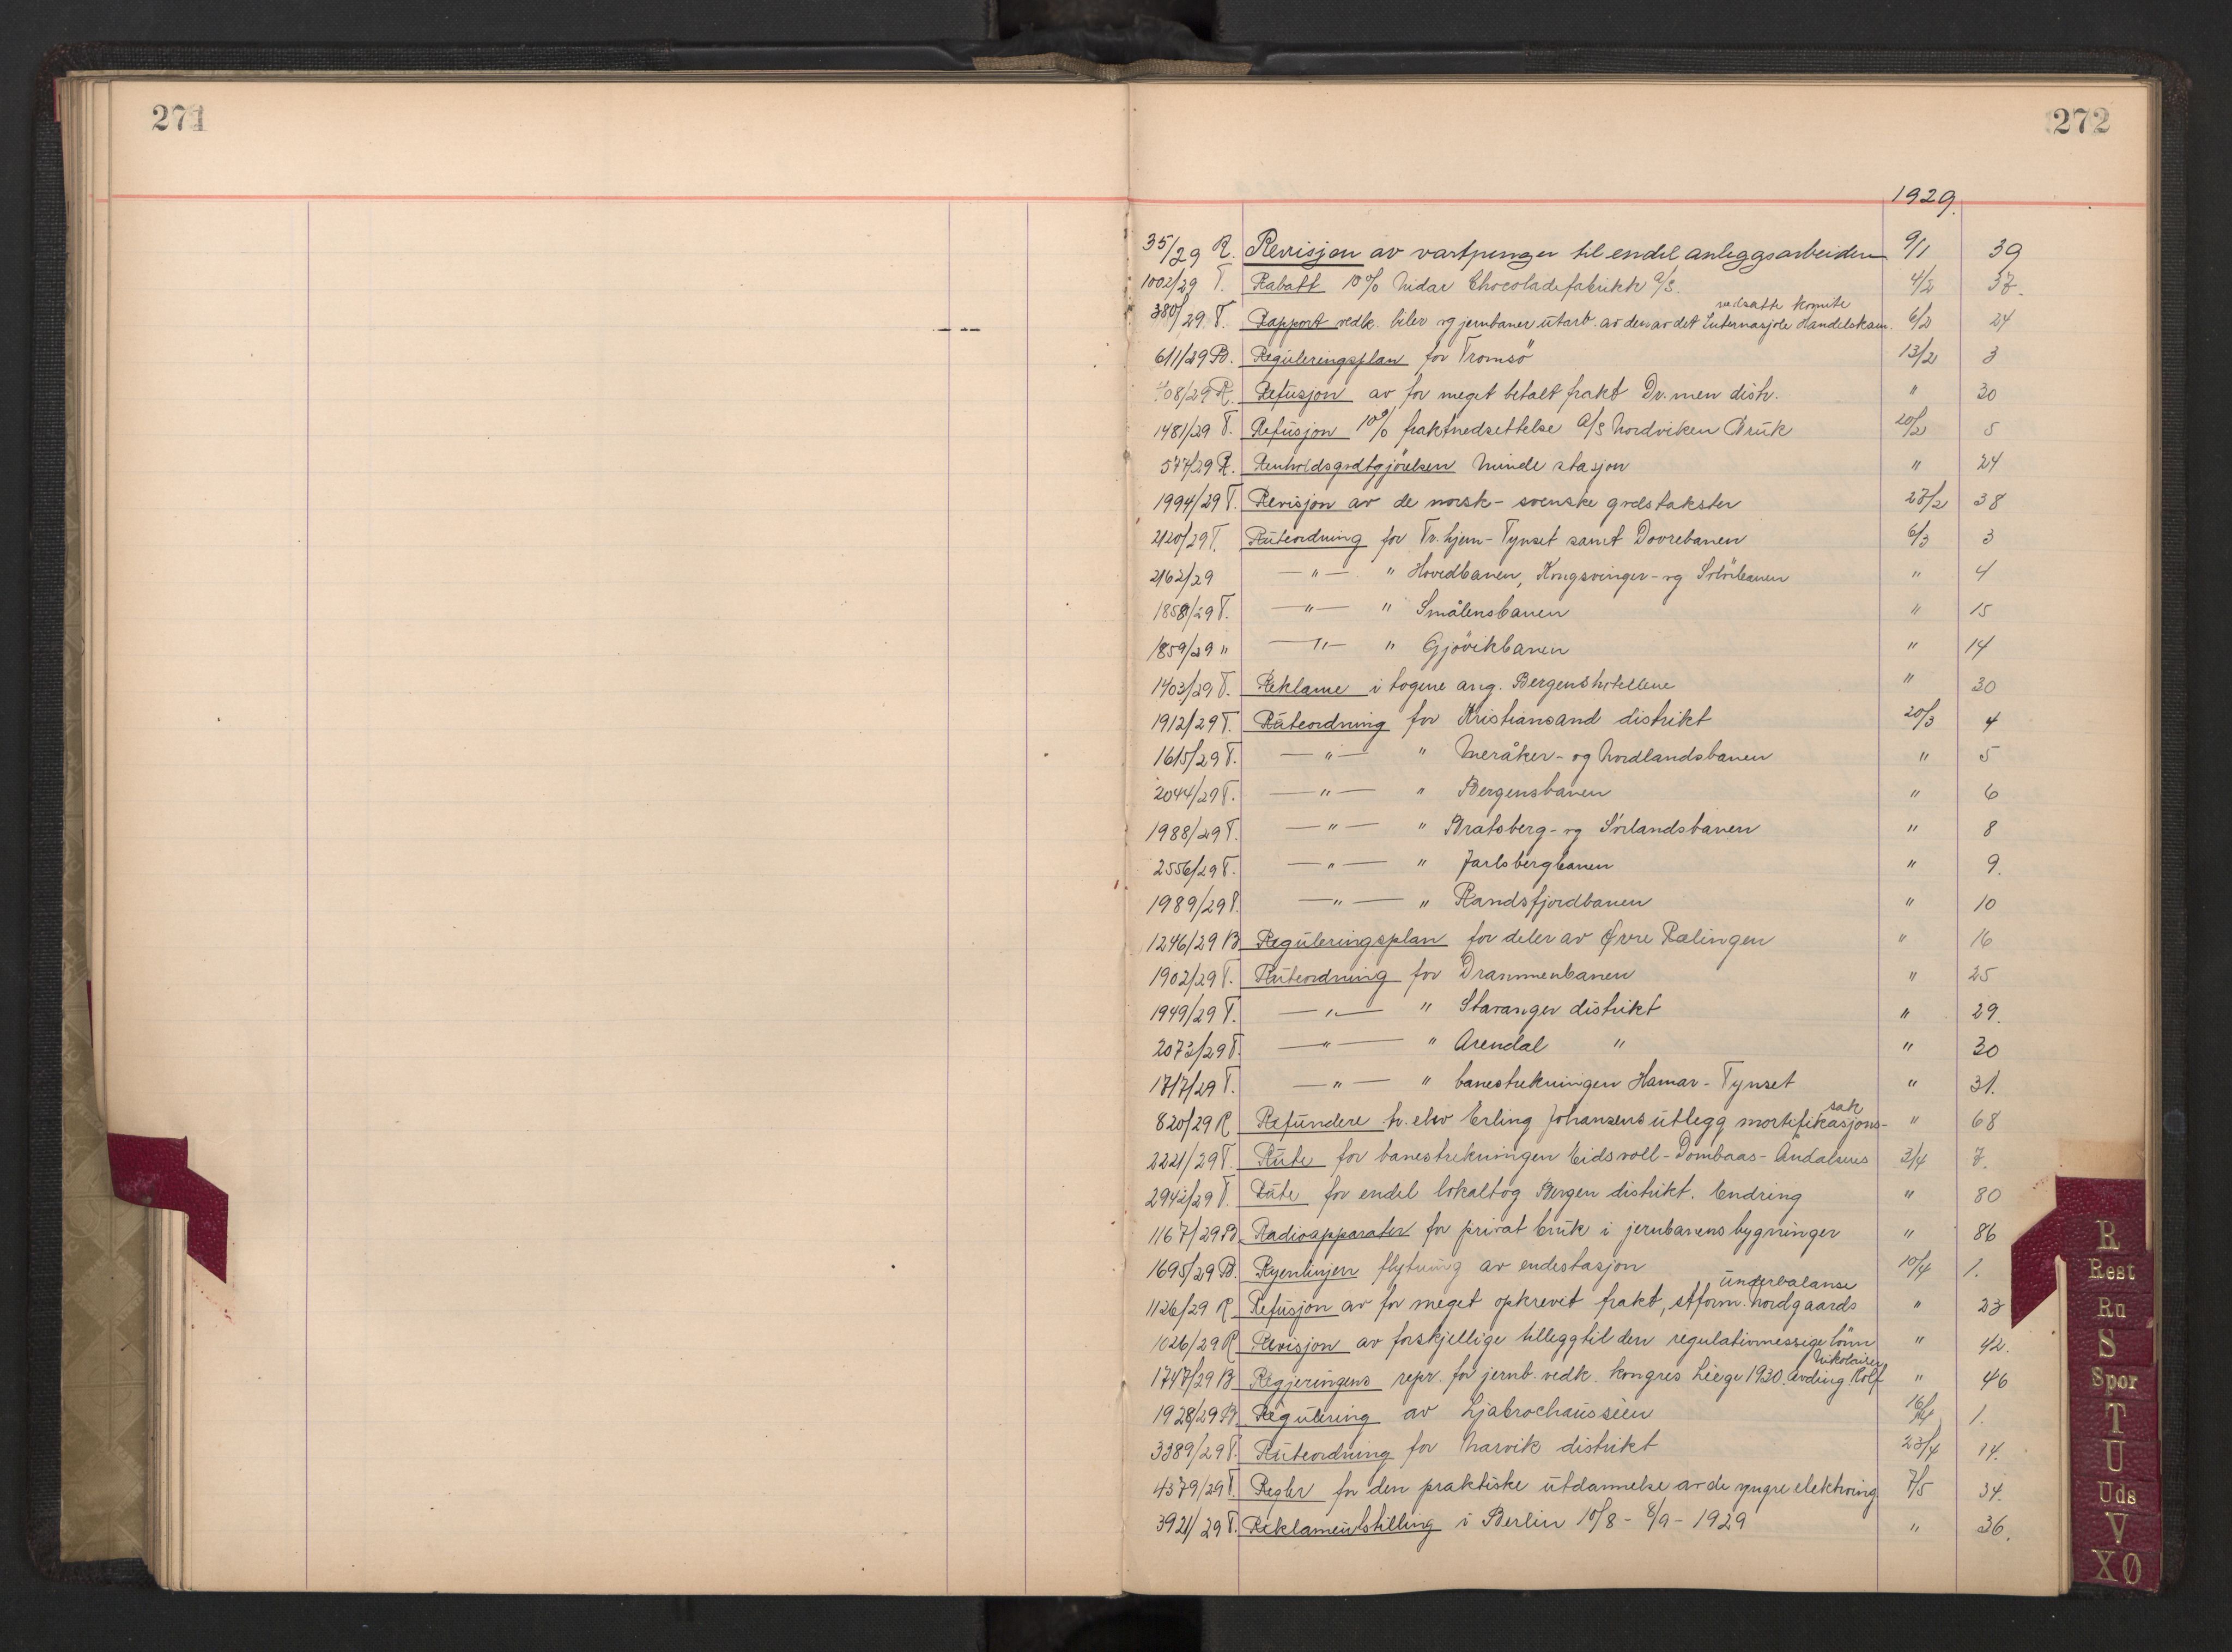 271
272
1929.
35/29 R. Revisjon av vartpenger til endel anleggsarbeidere 9/1 39
1002/29 T. Rabatt 10% Nidar Chocoladefabrikk A/S. 4/2 37.
nedsatte komite
380/29 T. Rapport vedk. biler og jernbaner utarb. av den av det Internasjole Handelskam. 6/2 24
611/29 B. Reguleringsplan for Tromsö 13/2 3
708/29 R. Refusjon av for meget betalt frakt Dr.men distr. " 30
1481/29 T. Refusjon 10% fraktnedsettelse A/S Nordviken Bruk 20/2 5
577/29 R. Renholdsgodtgjörelsen Minde stasjon " 24
1994/29 T. Revisjon av de norsk-svenske godstakster 27/2 38
2120/29 T. Ruteordning for Tr.hjem-Tynset samt Dovrebanen 6/3 3
2162/29 —"— " Hovedbanen, Kongsvinger- og Solörbanen " 4
1858/29 T. —"— " Smålensbanen " 15
1859/29 " —"— " Gjövikbanen " 14
1403/29 T. Reklame i togene ang. Bergenshotellene " 30
1912/29 T. Ruteordning for Kristiansand distrikt 20/3 4
1615/29 T. —"— " Meråker- og Nordlandsbanen " 5
2044/29 T. —"— " Bergensbanen " 6
1988/29 T. —"— " Bratsberg- og Sörlandsbanen " 8
2556/29 T. —"— " Jarlsbergbanen " 9.
1989/29 T. —"— " Randsfjordbanen " 10
1246/29 B Reguleringsplan for deler av Øvre Rælingen " 16
1902/29 T. Ruteordning for Drammenbanen " 25
1949/29 T. —"— " Stavanger distrikt " 29.
2073/29 T. —"— " Arendal " " 30
1717/29 T. —"— " banestrekningen Hamar-Tynset " 31.
sak
820/29 R Refundere h. elev Erling Johansens utlegg mortifikasjons- " 68
2221/29 T. Rute for banestrekningen Eidsvoll-Dombaas-Åndalsnes 3/4 7.
2942/29 T. Rute for endel lokaltog Bergen distrikt. Endring " 80
1167/29 B. Radioapparater for privat bruk i jernbanens bygninger " 86
1695/29 B. Ryenlinjen flytning av endestasjon 10/4 1.
underbalanse
1126/29 R Refusjon av for meget opkrevet frakt, stform. Nordgaards " 23
1026/29 R Revisjon av forskjellige tillegg til den regulativmessige lönn " 42.
Nikolaisen
1747/29 B Regjeringens repr. for jernb. vedk. kongres Liège 1930. Avding. Rolf " 46
1928/29 B Regulering av Ljabrochausséen 16/4 1.
3389/29 T. Ruteordning for Narvik distrikt 23/4 14.
4379/29 T. Regler for den praktiske utdannelse av de yngre elektroing. 7/5 34.
3921/29 T. Reklameutstilling i Berlin 10/8 - 8/9 - 1929 " 36.
R
Rest
Ru
S
Spor
T
U
Uds
V
XØ